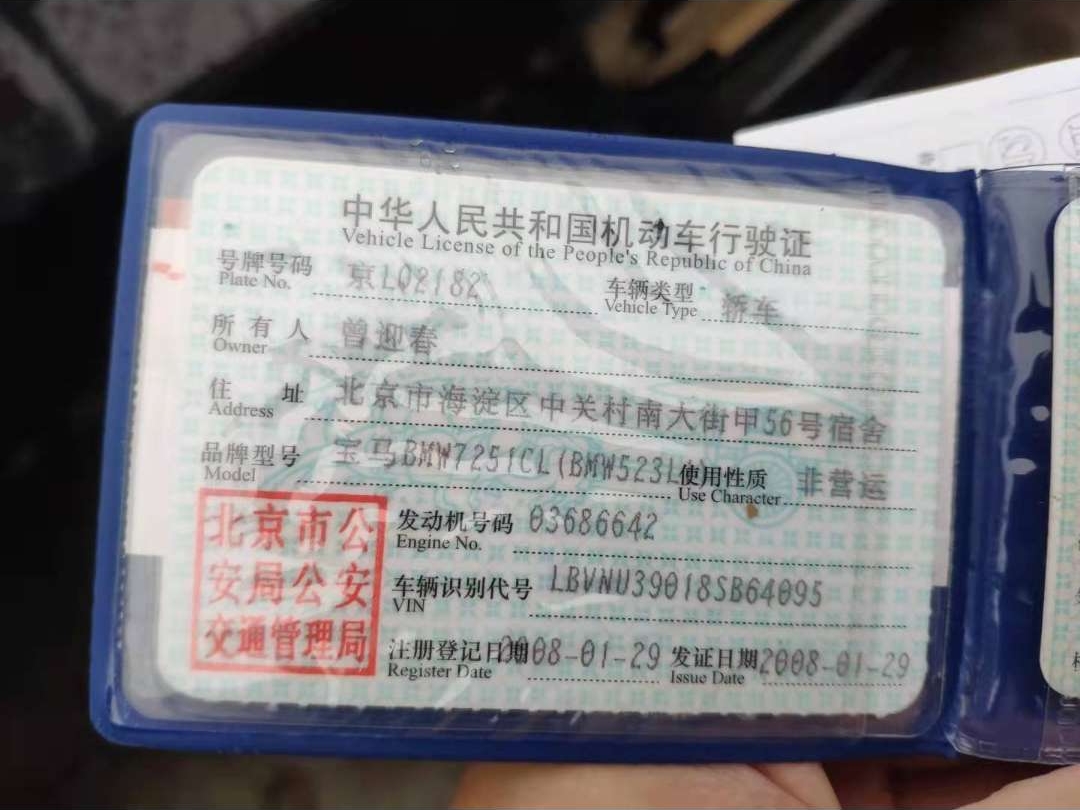 中华人民共和国机动车行驶证
Vehicle License of the People's Republic of China
号牌号码 京LQ2182 车辆类型 轿车
Plate No. Vehicle Type
所有人 曾迎春
Owner
住址 北京市海淀区中关村南大街甲56号宿舍
Address
品牌型号 宝马BMW7251CL(BMW523L 使用性质 非营运
Model Use Character
北京市公
安局公安
交通管理局
发动机号码 03686642
Engine No.
车辆识别代号 LBVNU39018SB64095
VIN
注册登记日期 2008-01-29 发证日期 2008-01-29
Register Date Issue Date